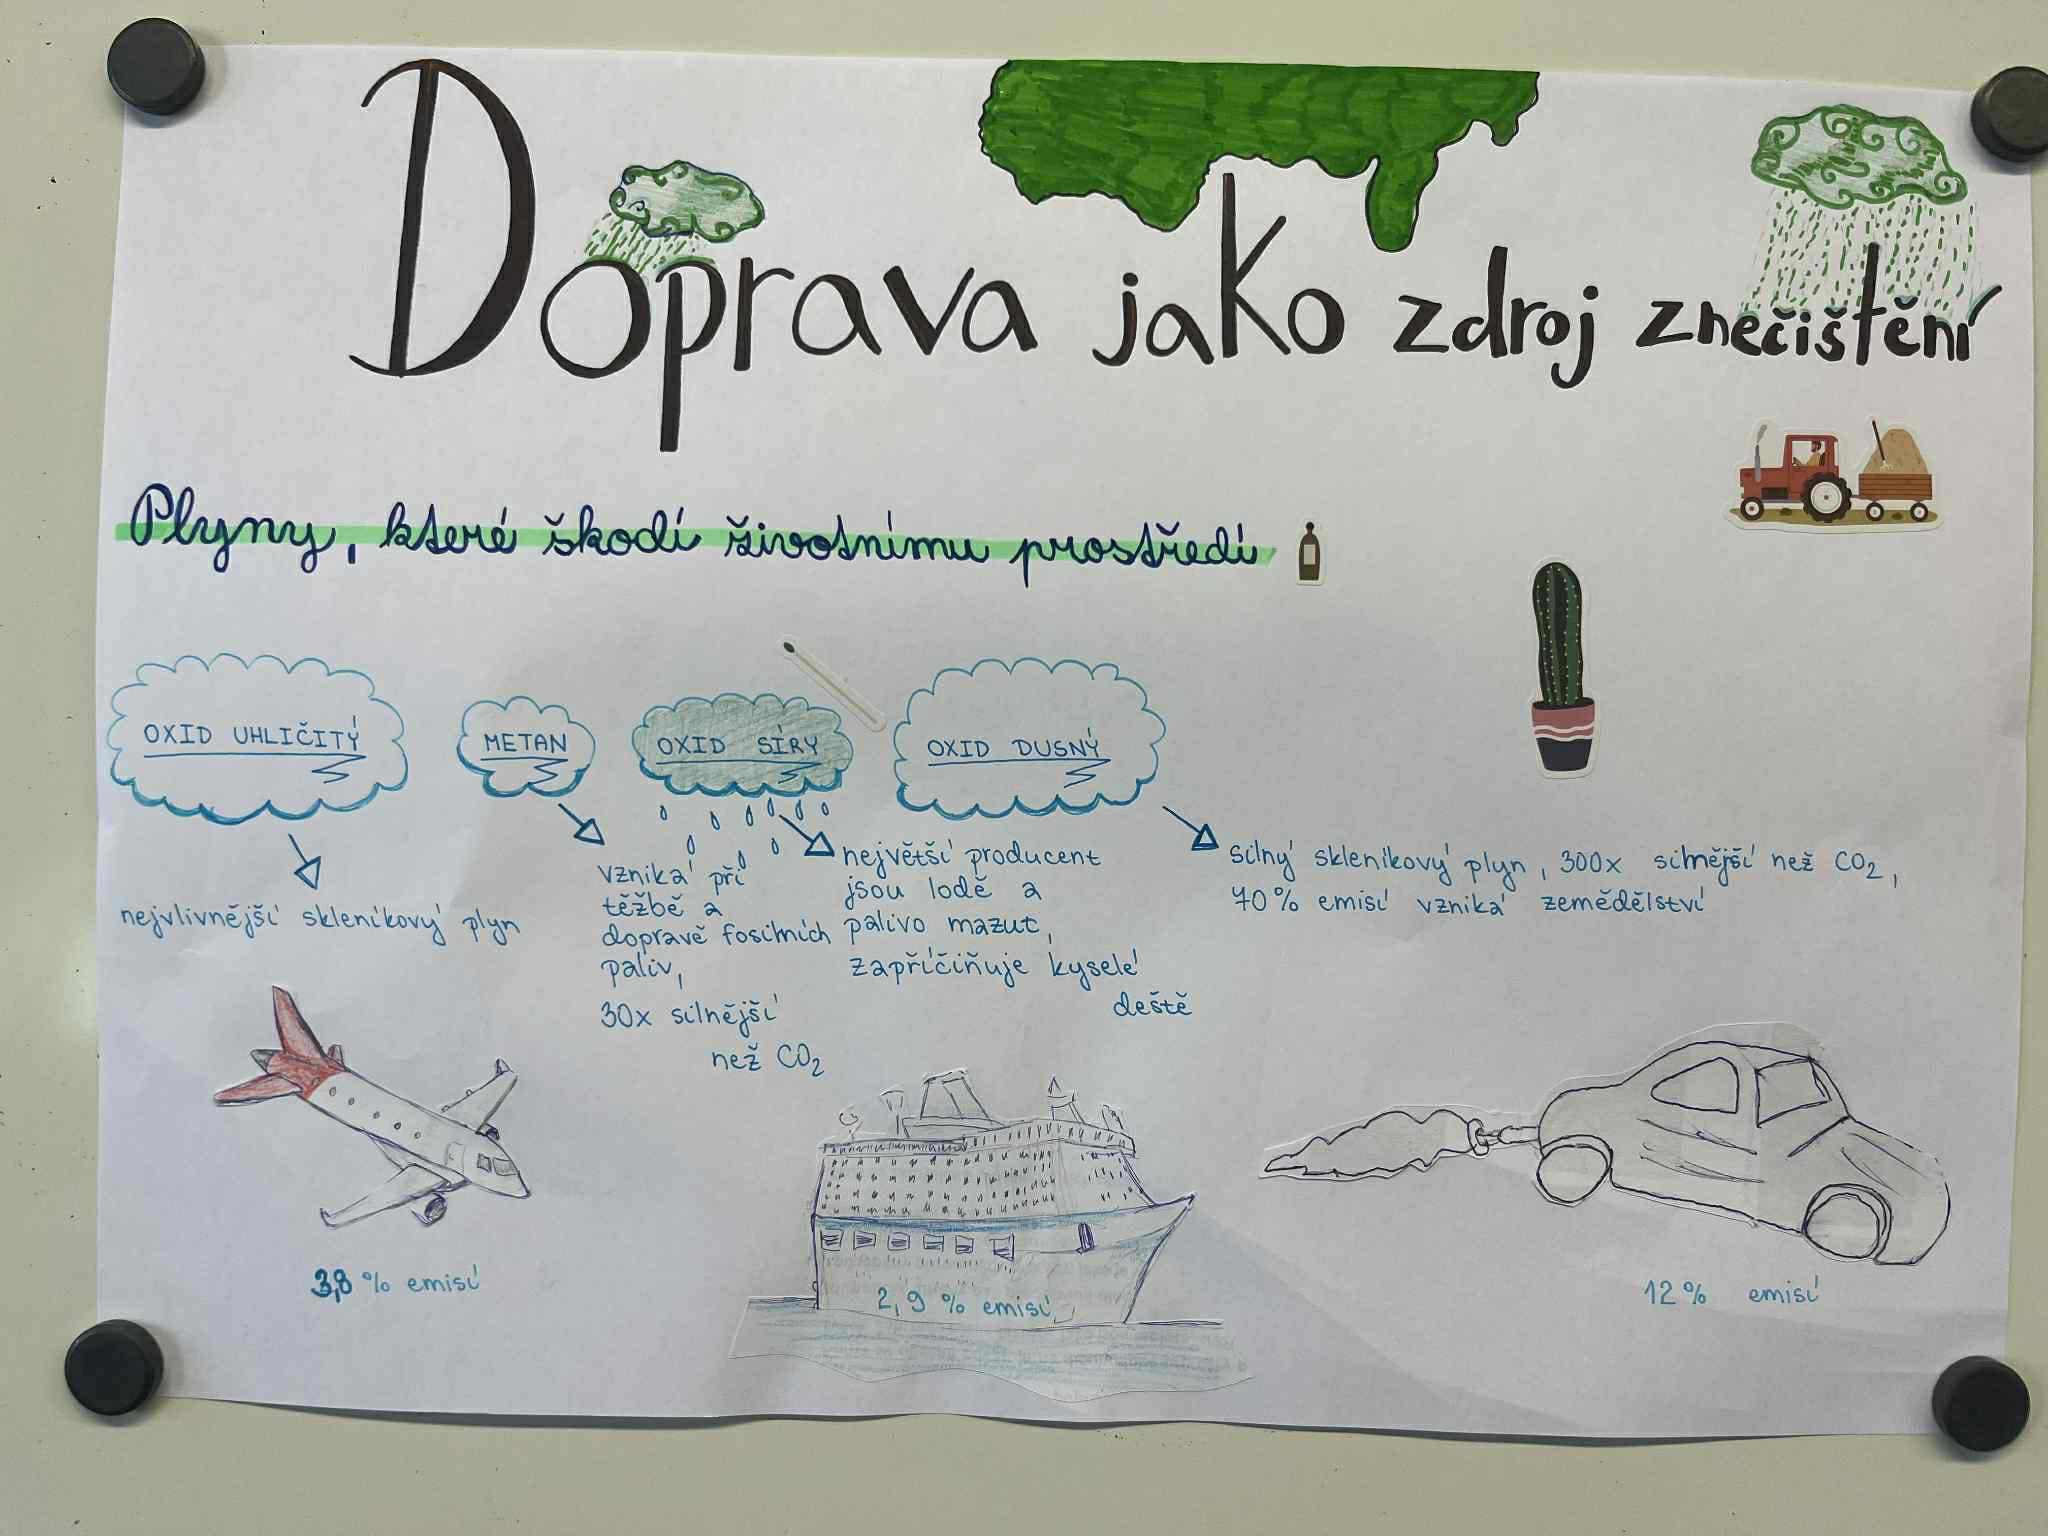 Doprava jako zdroj znečištění
Plyny, které škodí životnímu prostředí
OXID UHLIČITÝ
nejvlivnější skleníkový plyn
METAN
vzniká při
těžbě a
dopravě fosilních
paliv,
30x silnější
než CO₂
OXID SÍRY
největší producent
jsou lodě a
palivo mazut,
zapříčiňuje kyselé
deště
OXID DUSNÝ
silný skleníkový plyn, 300x silnější než CO₂,
70% emisí vzniká zemědělství
3,8 % emisí
2,9 % emisí
12 % emisí